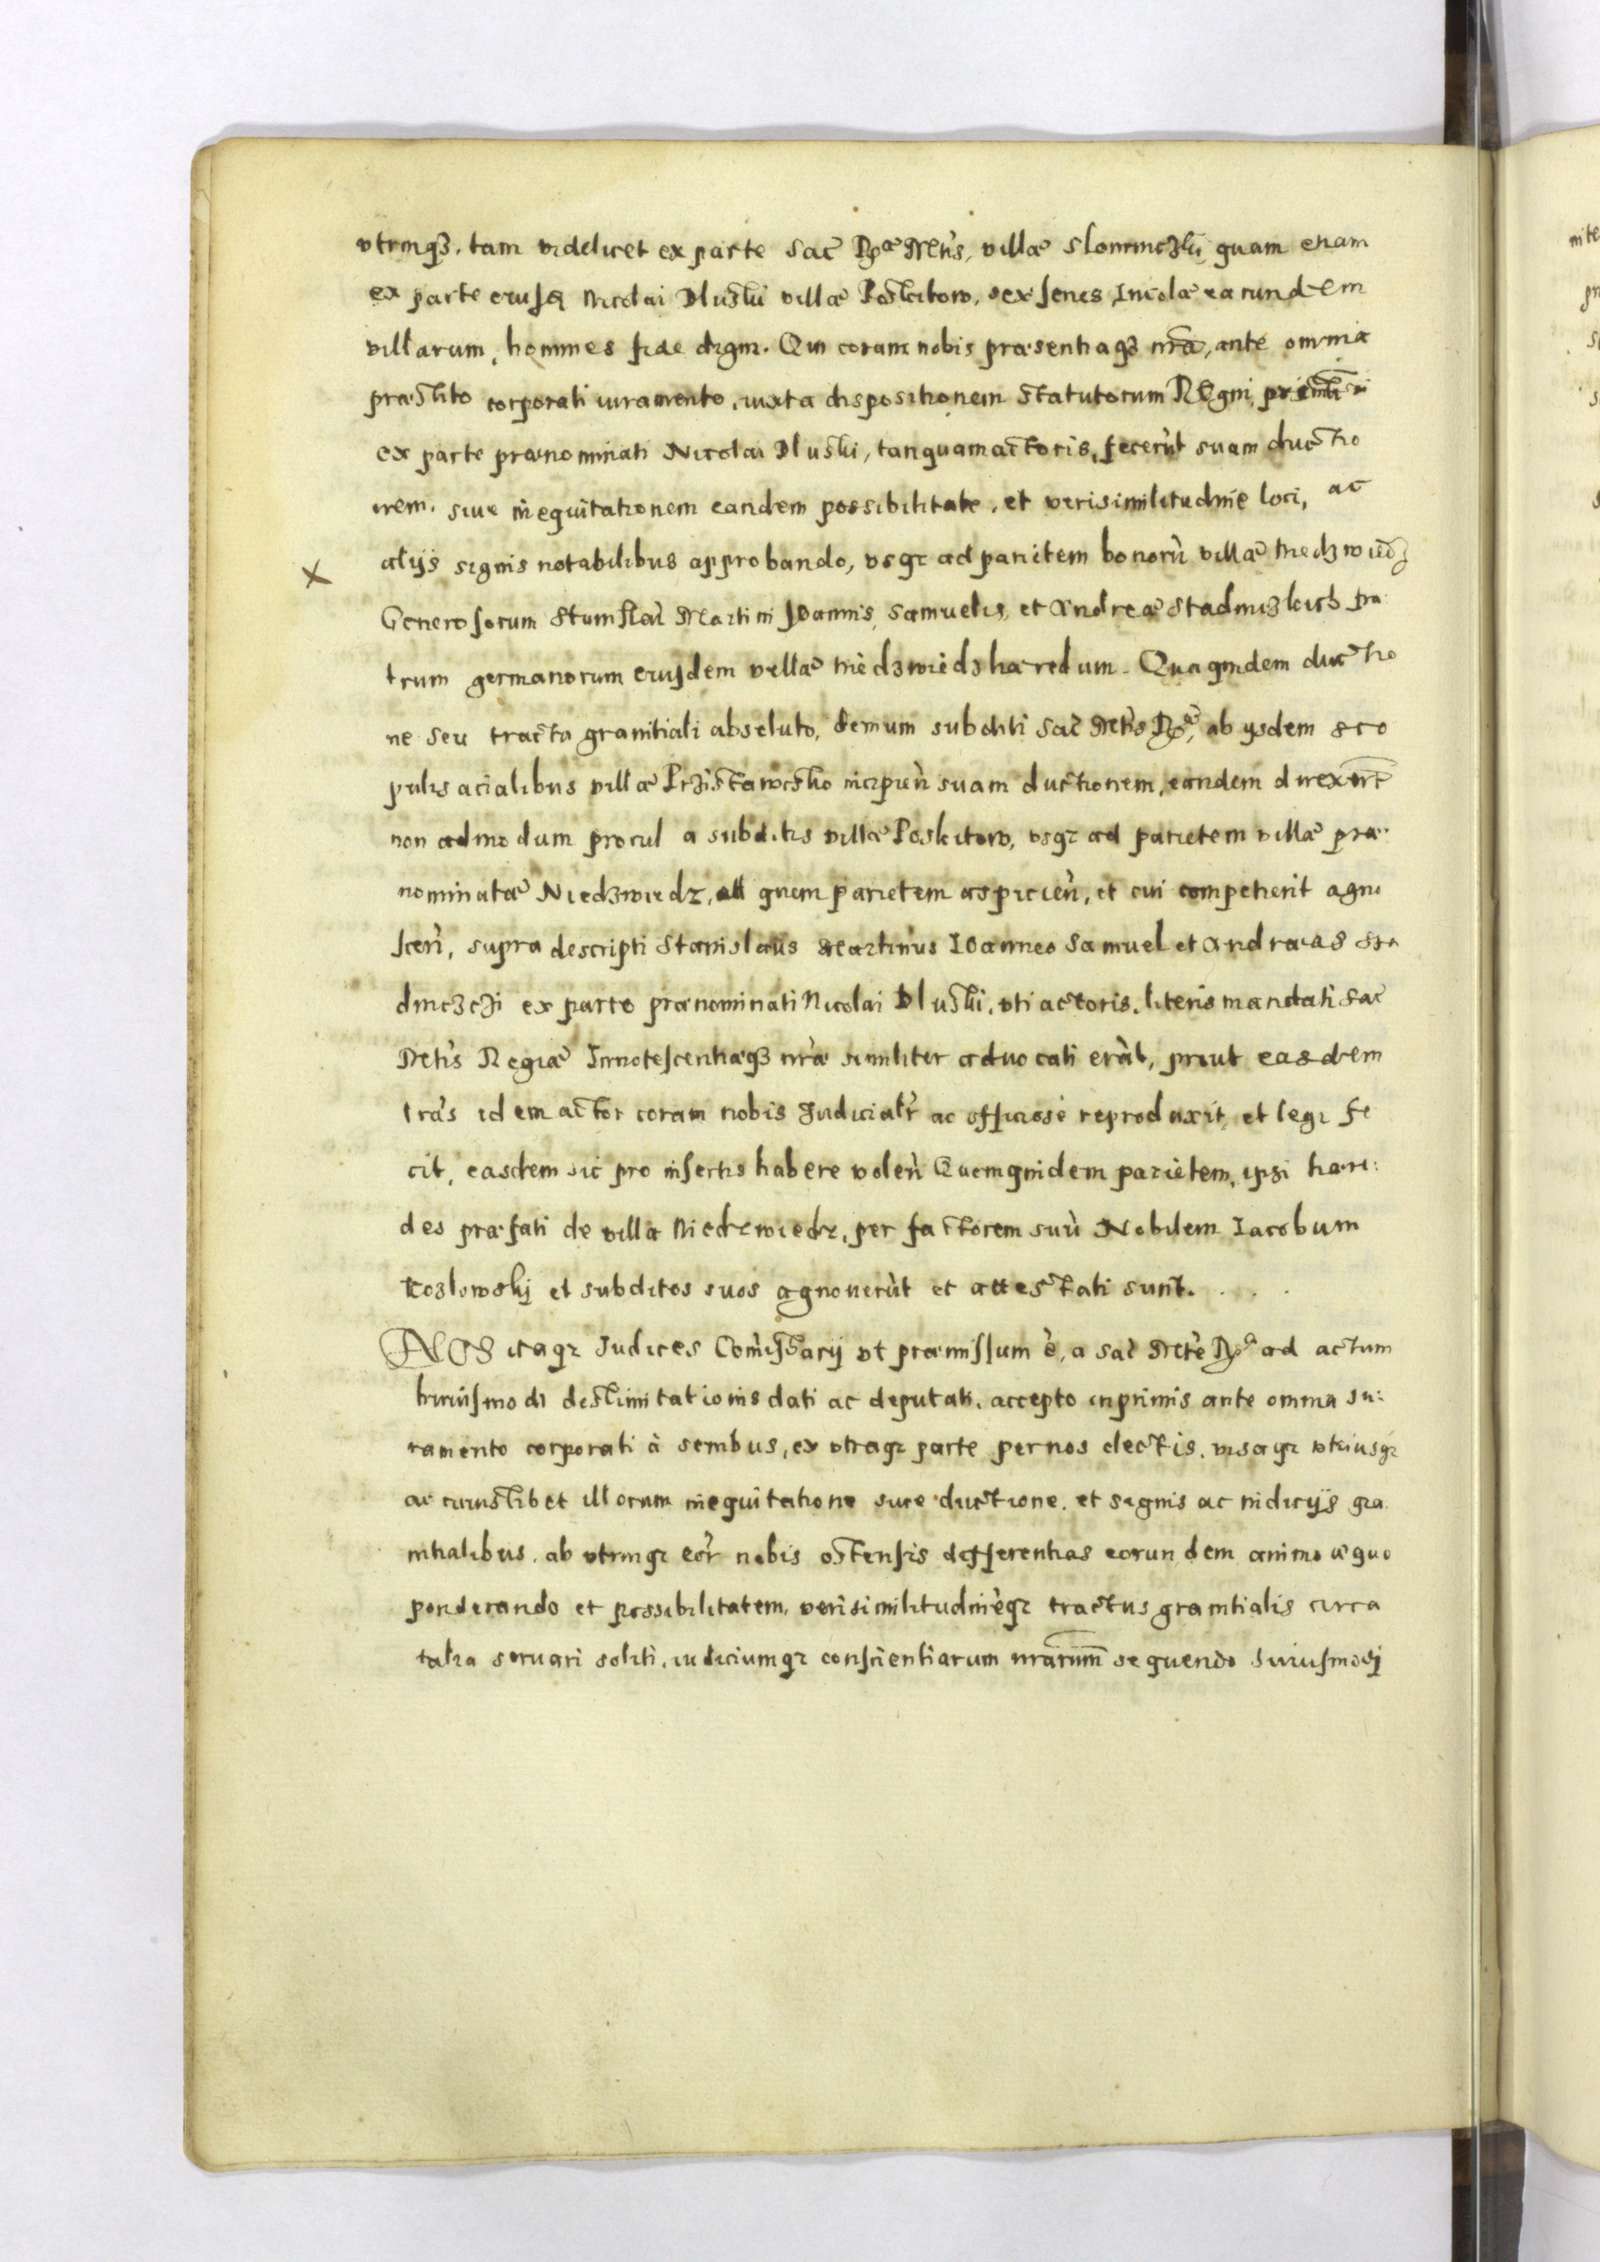 vtrinqʒ. tam videlicet ex parte Sac̃ R̃gæ Mẽtis, villæ Slomniczki quam etiam
ex parte eiusd Nicolai Dluski villæ Poskitow, sex senes Incolæ earundem
villarum, homines fide digni. Qui coram nobis præsentiaqʒ nr̃a, ante omnia
præstito corporali iuramento, iuxta dispositionem Statutorum Regni,
ex parte prænominati Nicolai Dluski, tanquam actoris, fecerùt suam ductio
nem. siue inequitationem eandem possibilitate, et verisimilitudine loci, ac
alijs signis notabilibus approbando, vsqʒ ad parietem bonorù villæ Niedzwiedz
Generosorum Stanislai Martini Joannis, Samuelis, et Andreæ Stadniczkich fra:
trum germanorum eiusdem villæ Niedzwiedz hæredum. Qua quidem ductio
ne seu tractu granitiali absoluto, demum subditi Sac̃ Mẽtis R̃gæ, ab ysdem sco
pulis acialibus villæ Przistawczko incipieñ suam ductionem, eandem direxer̃t
non admodum procul a subditis villæ Poskitow, vsqʒ ad parietem villæ præ:
nominatæ Niedzwiedz, quem parietem aspicieñ, et cui competierit agno
sceñ, supra descripti Stanislaus Martinus Ioannes Samuel et Andræas Sta
dniczczi ex parte prænominati Nicolai Dluski, vti actoris, literis mandati Sac̃
Mẽtis Regiæ Innotescentiæqʒ nr̃æ similiter aduocati eràt, prout easdem
lr̃as idem actor coram nobis Judicialr̃ ac officiosè reproduxit, et legi fe
cit, easdem sic pro insertis habere voleñ Quemquidem parietem, ipsi hære:
des præfati de villa Niedzwiedz, per factorem suù Nobilem Iacobum
Kozlowskj et subditos suos agnouerùt et attestati sunt. . . .
NOS itaqʒ Iudices Com̃issarij vt præmissum è, a Sac̃ Mẽte R̃ga ad actum
huiusmodi destimitationis dati ac deputati, accepto inprimis ante omnia iu:
ramento corporali à senibus, ex vtraqʒ parte per nos electis, visaqʒ vtriusqʒ
ac cuiuslibet illorum inequitatione siue ductione, et signis ac indicijs gra
nitialibus, ab vtrinqʒ eor̃ nobis ostensis differentias eorundem animo æquo
ponderando et possibilitatem, verisimilitudinèqʒ tractus granitialis circa
talia seruari soliti, iudiciumqʒ conscientiarum nr̃arum sequendo huiusmodj